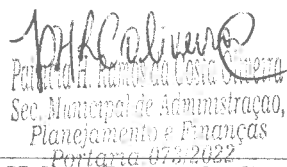 H. Ramos da Costa Oliveira
Sec. Municipal de Administração,
Planejamento e Finanças
Portaria 073/2022